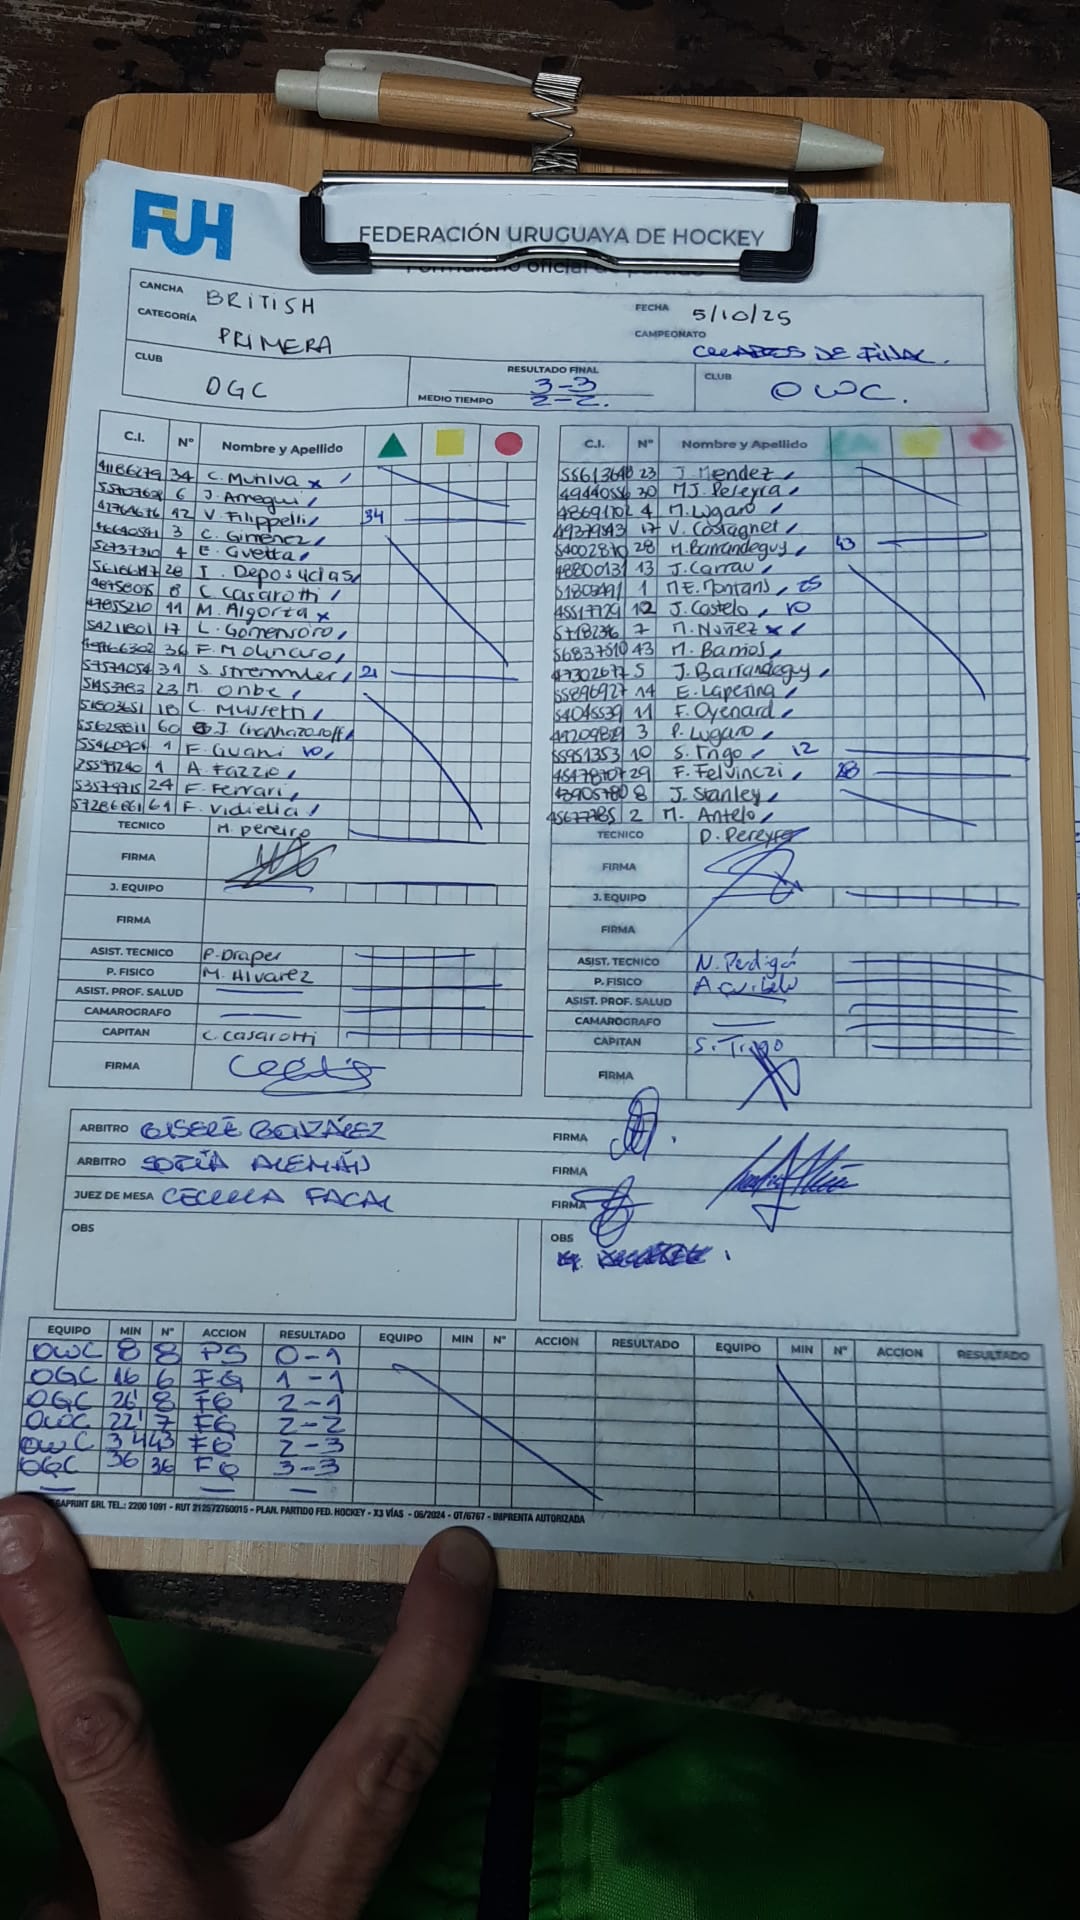 FUH
FEDERACIÓN URUGUAYA DE HOCKEY
CANCHA BRITISH
FECHA 5/10/25
CATEGORÍA PRIMERA
CAMPEONATO CUARTOS DE FINAL.
CLUB OGC
RESULTADO FINAL 3-3
MEDIO TIEMPO 2-2.
CLUB OWC.
C.I. Nº Nombre y Apellido
41186279 34 C. Mutilva x
6 J. Arregui
42 V. Filippelli 34
3 C. Gimenez
4 E. Guetta
28 I. Deposucias
8 C. Casarotti
11 M. Algorta x
17 L. Gomensoro
36 F. Molinaro
31 S. Stremmler 21
23 M. Onbe
18 C. Mussetti
60 J. Cranhazoroff
1 F. Guani 10
1 A. Fazzio
24 F. Ferrari
61 F. Vidiella
TECNICO M. Pereiro
FIRMA
J. EQUIPO
FIRMA
ASIST. TECNICO P. Draper
P. FISICO M. Alvarez
ASIST. PROF. SALUD
CAMAROGRAFO
CAPITAN C. Casarotti
FIRMA
C.I. Nº Nombre y Apellido
23 J. Mendez
30 MJ. Pereyra
4 M. Lugaro
17 V. Castagnet
28 M. Barrandeguy 43
48800131 13 J. Carrau
1 ME. Montans, 25
12 J. Castelo, 10
7 M. Nuñez x
43 M. Barrios
5 J. Barrandeguy
55896927 14 E. Laperina
54045539 11 F. Oyenard
3 P. Lugaro
55951353 10 S. Trigo 12
29 F. Felvinczi 28
8 J. Stanley
2 M. Antelo
TECNICO D. Pereyra
FIRMA
J. EQUIPO
FIRMA
ASIST. TECNICO N. Perdigón
P. FISICO
ASIST. PROF. SALUD
CAMAROGRAFO
CAPITAN S. Trigo
FIRMA
ARBITRO GISELE GONZÁLEZ FIRMA
ARBITRO SOFÍA ALEMÁN FIRMA
JUEZ DE MESA CECILIA FACAL FIRMA
OBS
OBS
EQUIPO MIN Nº ACCION RESULTADO EQUIPO MIN Nº ACCION RESULTADO EQUIPO MIN Nº ACCION RESULTADO
OWC 8 8 PS 0-1
OGC 16 6 FG 1-1
OGC 26' 8 FG 2-1
OWC 22' 7 FG 2-2
OWC 34 43 FG 2-3
OGC 36 36 FG 3-3
SRL TEL.: 2200 1091 - RUT 212572760015 - PLAN. PARTIDO FED. HOCKEY - X3 VÍAS - 06/2024 - OT/6767 - IMPRENTA AUTORIZADA